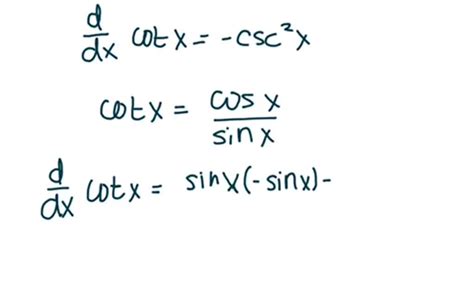 d/dx cot x = -csc²x
cot x = cos x / sin x
d/dx cot x = sin x (- sin x) -